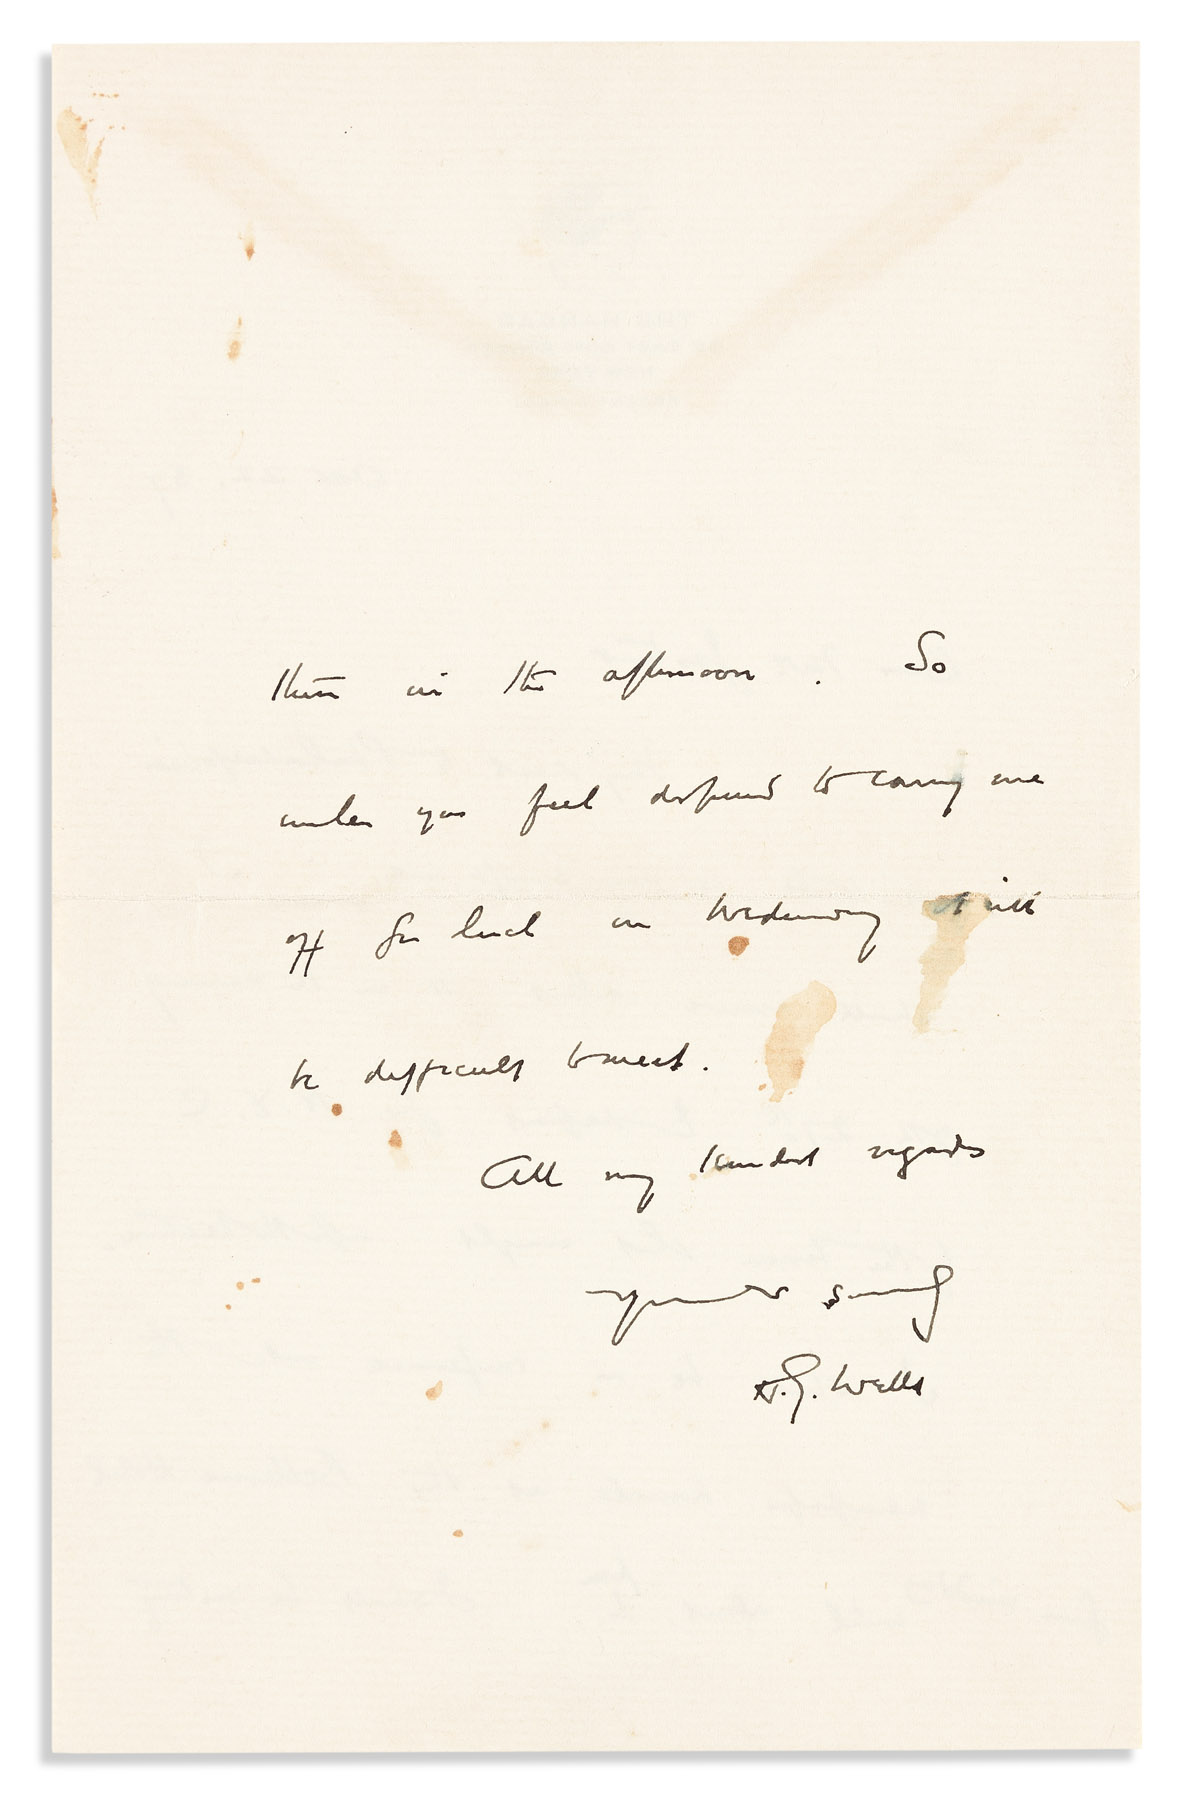 there in the afternoon. So
unless you feel disposed to carry me
off for lunch on Wednesday it will
be difficult to meet.
All my kindest regards
Yours sincerely
H. G. Wells